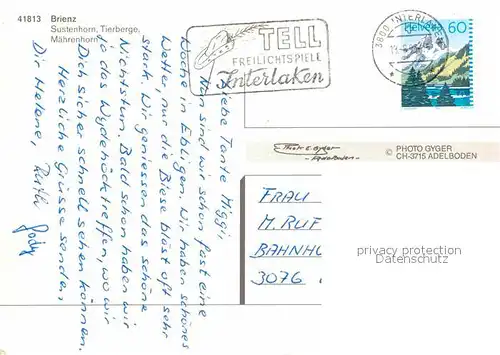 41813 Brienz
Sustenhorn, Tierberge,
Mährenhorn
TELL
FREILICHTSPIELE
Interlaken
3800 INTERLAKEN
Helvetia 60
Liebe Tante Miggi,
Nun sind wir schon fast eine
Woche in Ebligen. Wir haben schönes
Wetter, nur die Biese bläst oft sehr
stark. Wir geniessen das schöne
Nichtstun. Bald schon haben wir
ja das Wydehöcktreffen, wo wir
Dich sicher schnell sehen können.
Herzliche Grüsse senden
Dir Helene, Ruthli
© PHOTO GYGER
CH-3715 ADELBODEN
FRAU
M. RUF
BAHNH
3076
privacy protection
Datenschutz